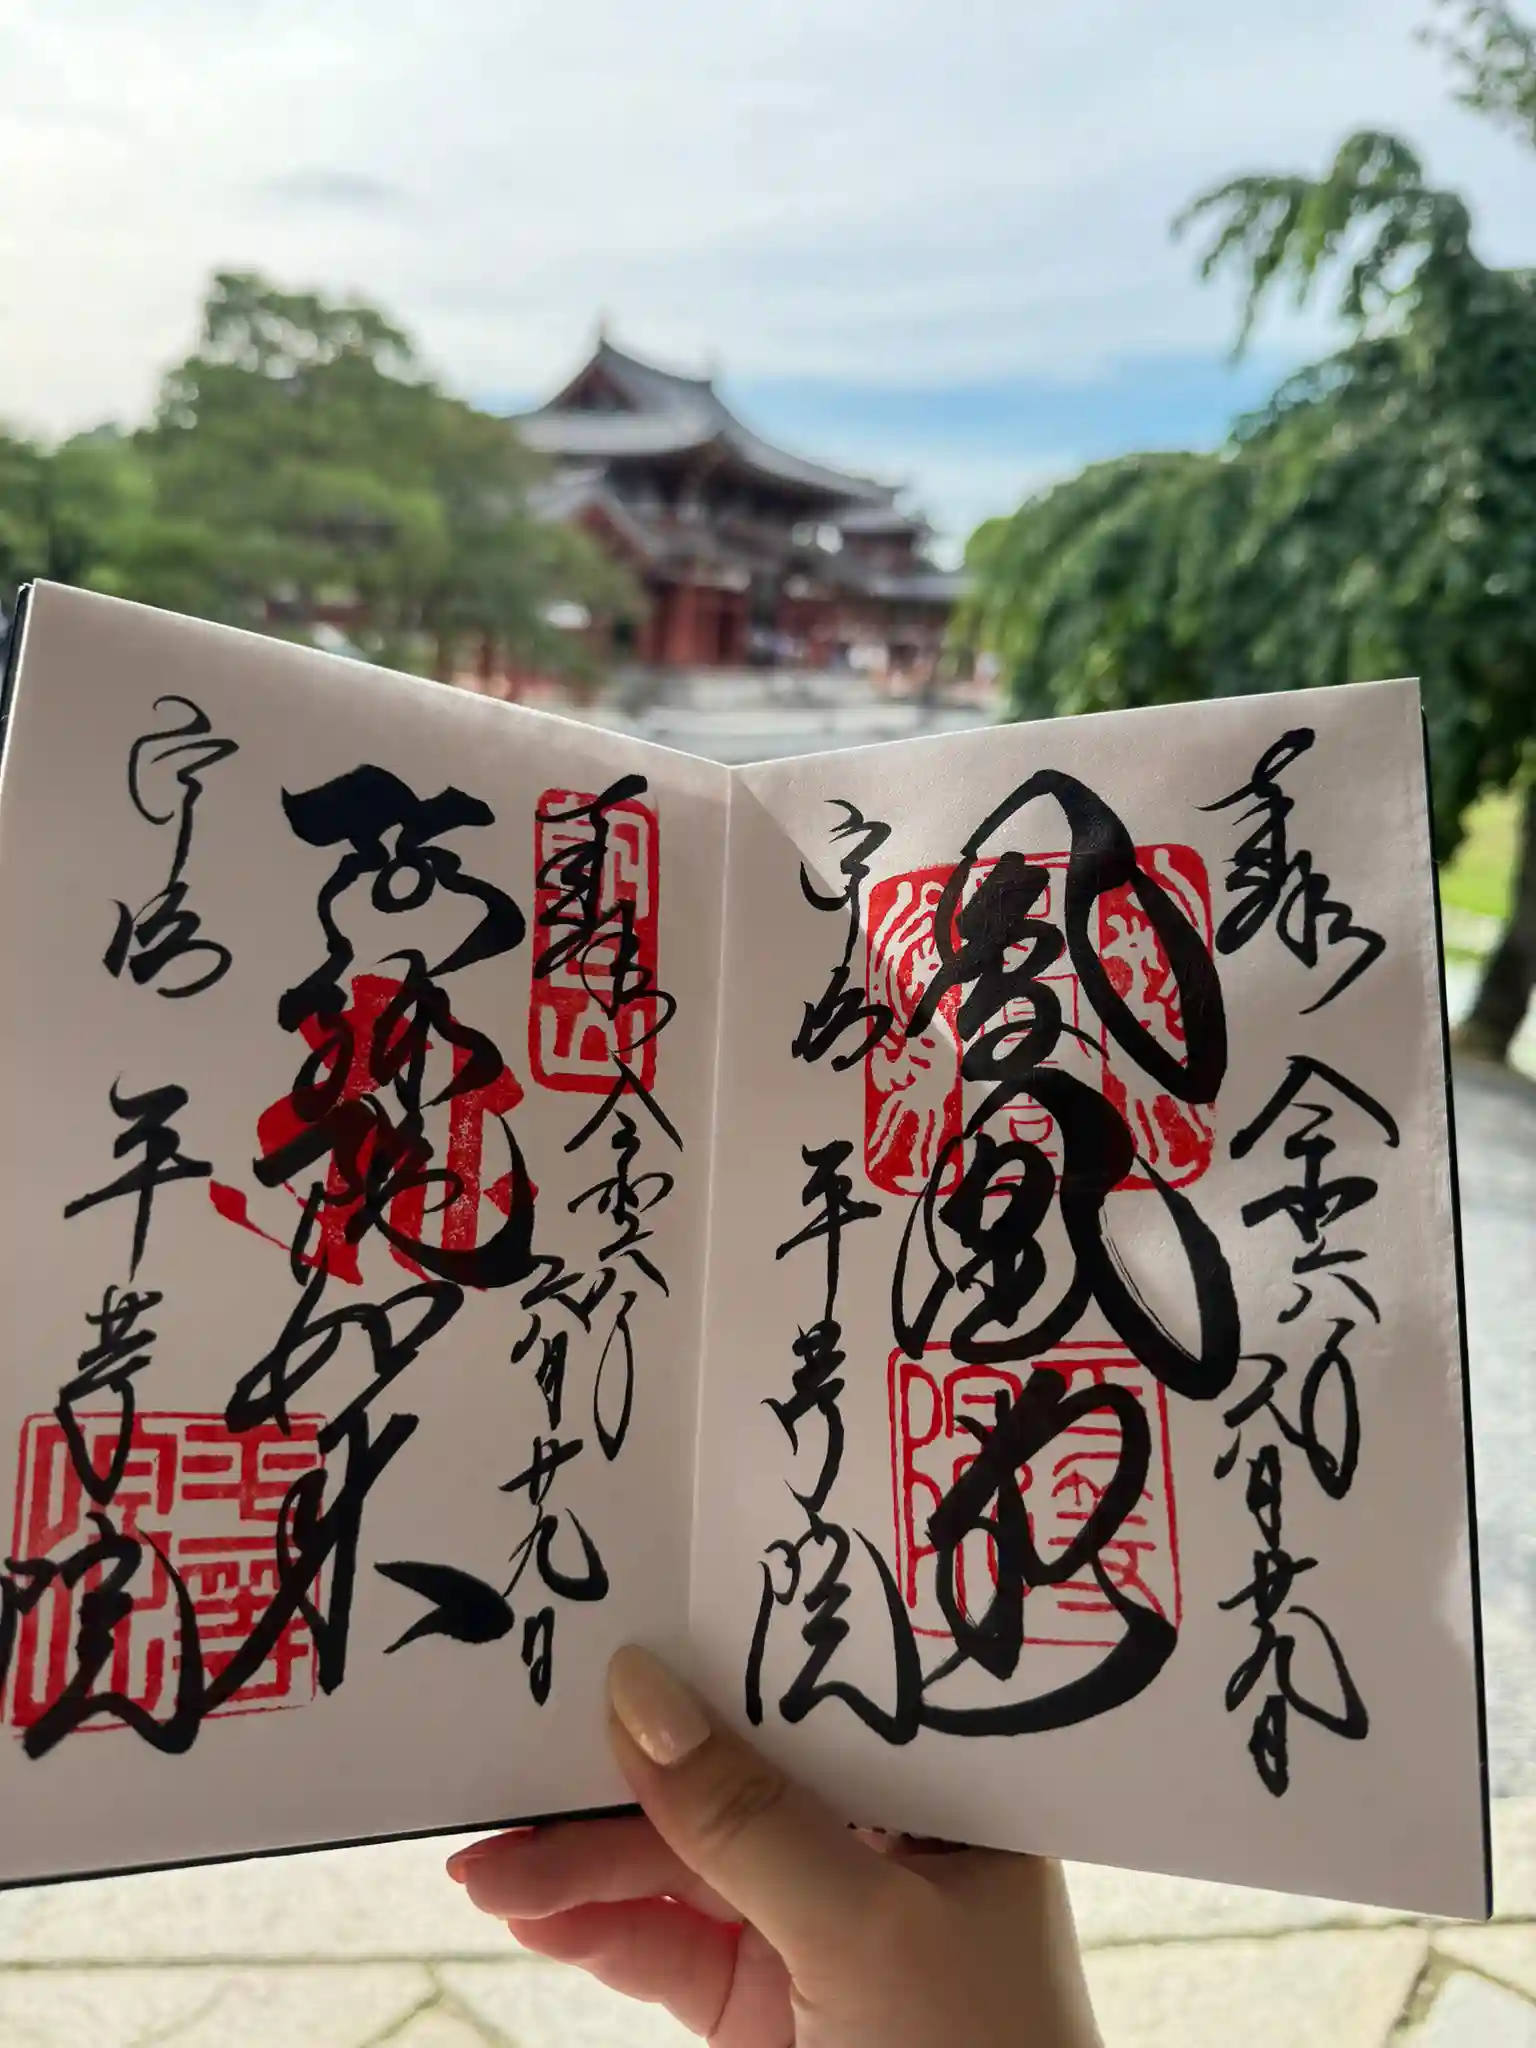 奉拝
令和六年
六月廿九日
鳳凰堂
宇治
平等院
奉拝
令和六年
六月廿九日
阿弥陀如来
宇治
平等院
平等院